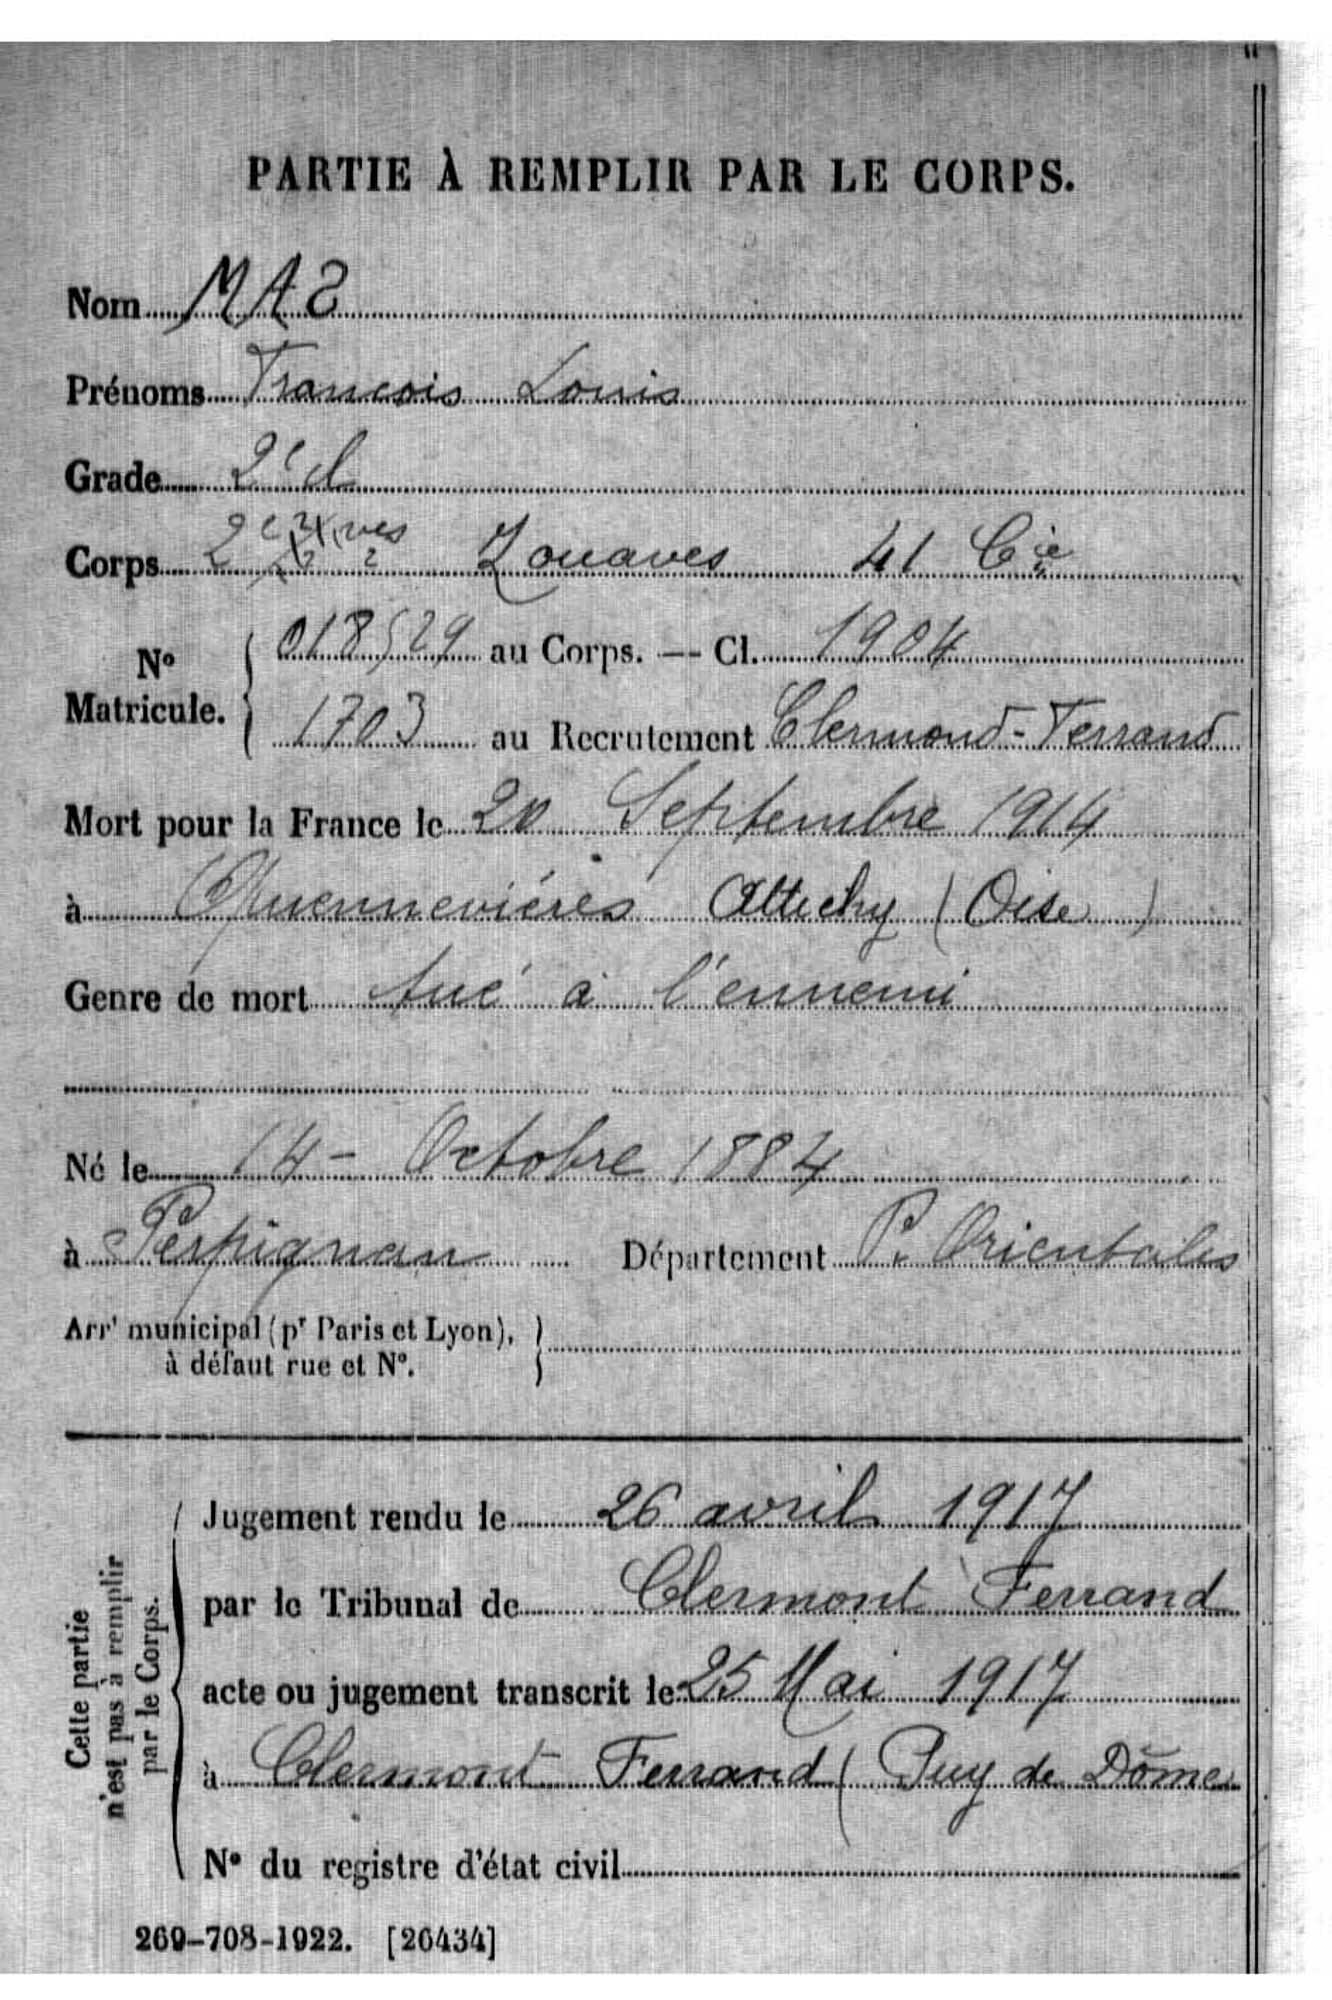 PARTIE À REMPLIR PAR LE CORPS.
Nom MAS
Prénoms Francois Louis
Grade 2e cl
Corps 2e Zouaves 41 Cie
No Matricule. 018529 au Corps. — Cl. 1904
1703 au Recrutement Clermond-Ferrand
Mort pour la France le 20 Septembre 1914
à Quennevières Attichy (Oise)
Genre de mort tué à l'ennemi
Né le 14 - Octobre 1884
à Perpignan Département P. Orientales
Arrt municipal (pr Paris et Lyon),
à défaut rue et No.
Cette partie n'est pas à remplir par le Corps.
Jugement rendu le 26 avril 1917
par le Tribunal de Clermont Ferrand
acte ou jugement transcrit le 25 Mai 1917
à Clermont Ferrand (Puy de Dôme
No du registre d'état civil
269-708-1922. [26434]